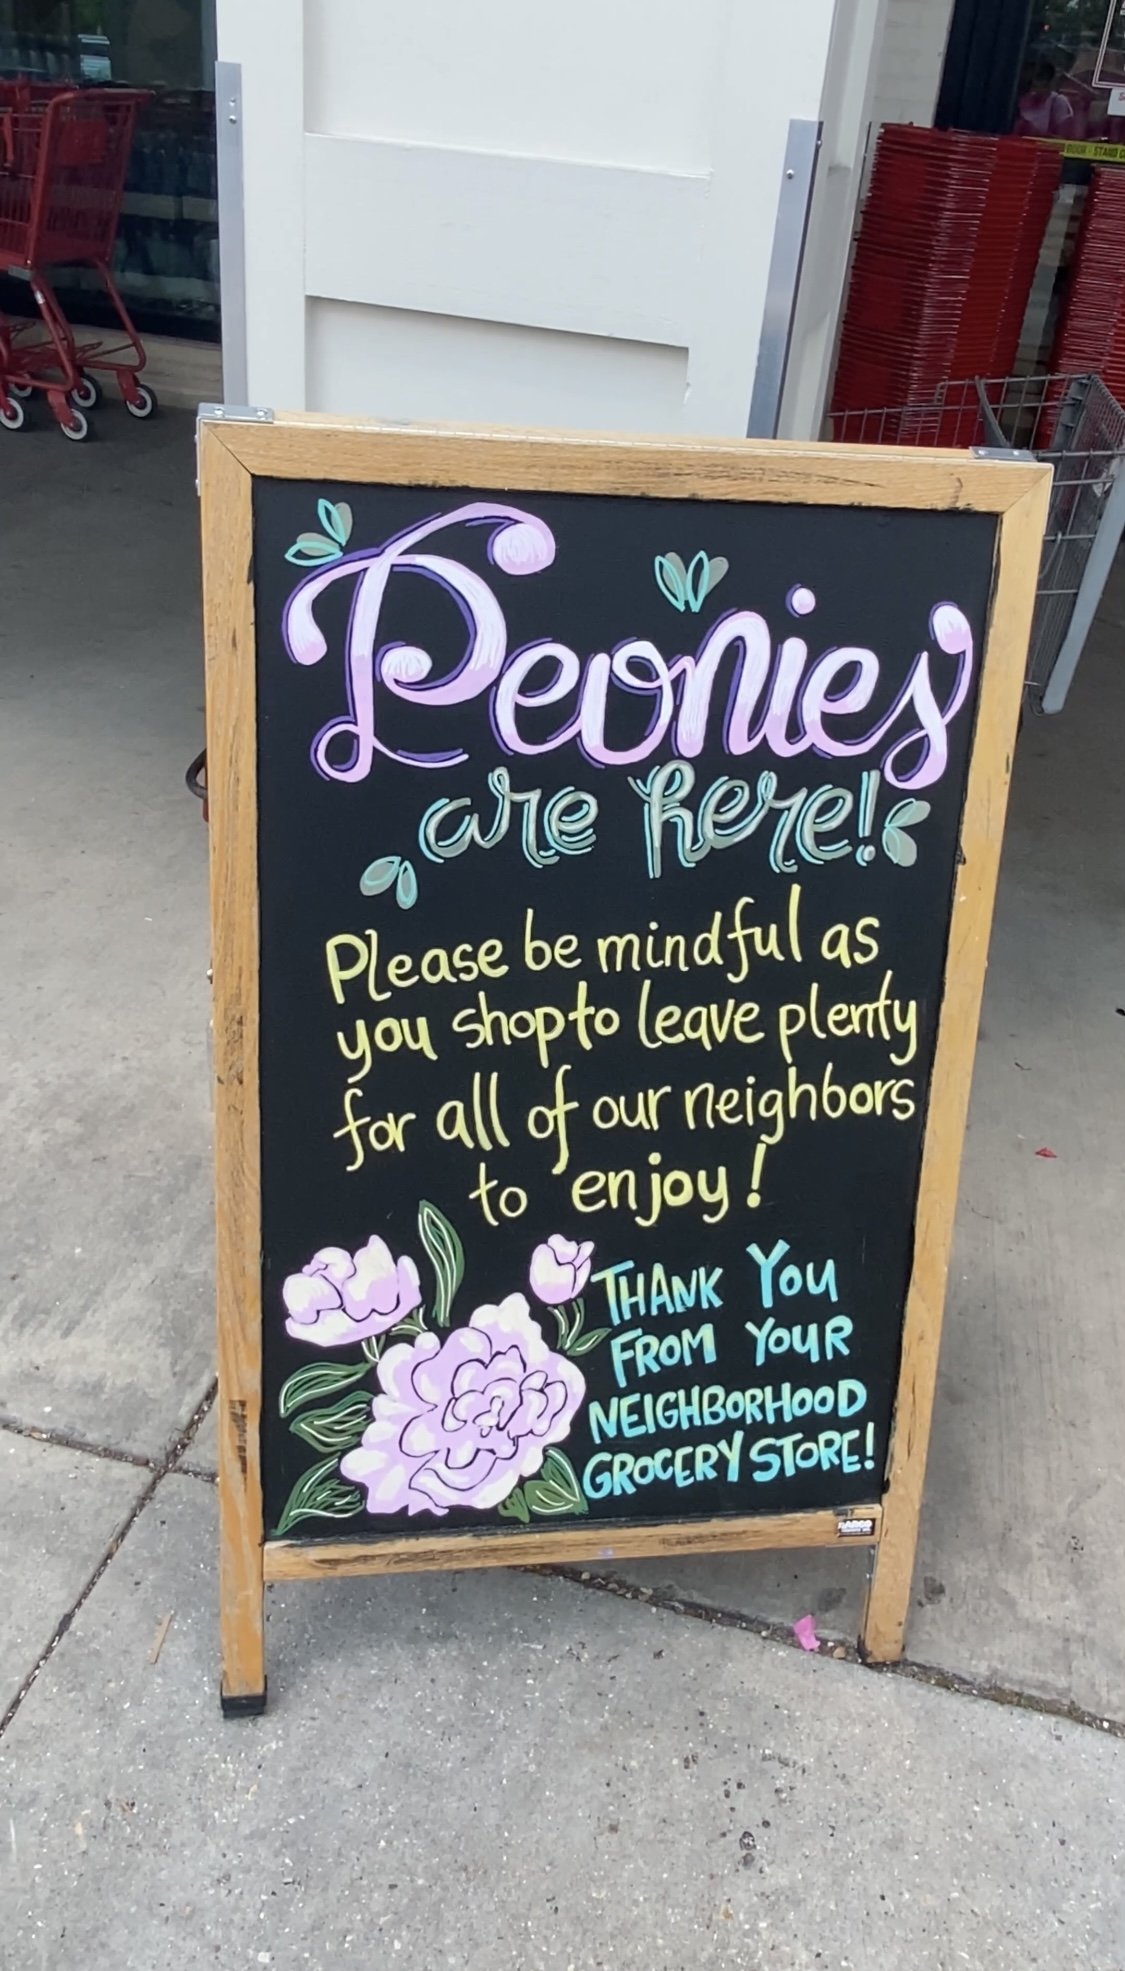 Peonies
are here!
Please be mindful as
you shop to leave plenty
for all of our neighbors
to enjoy!
THANK YOU
FROM YOUR
NEIGHBORHOOD
GROCERY STORE!